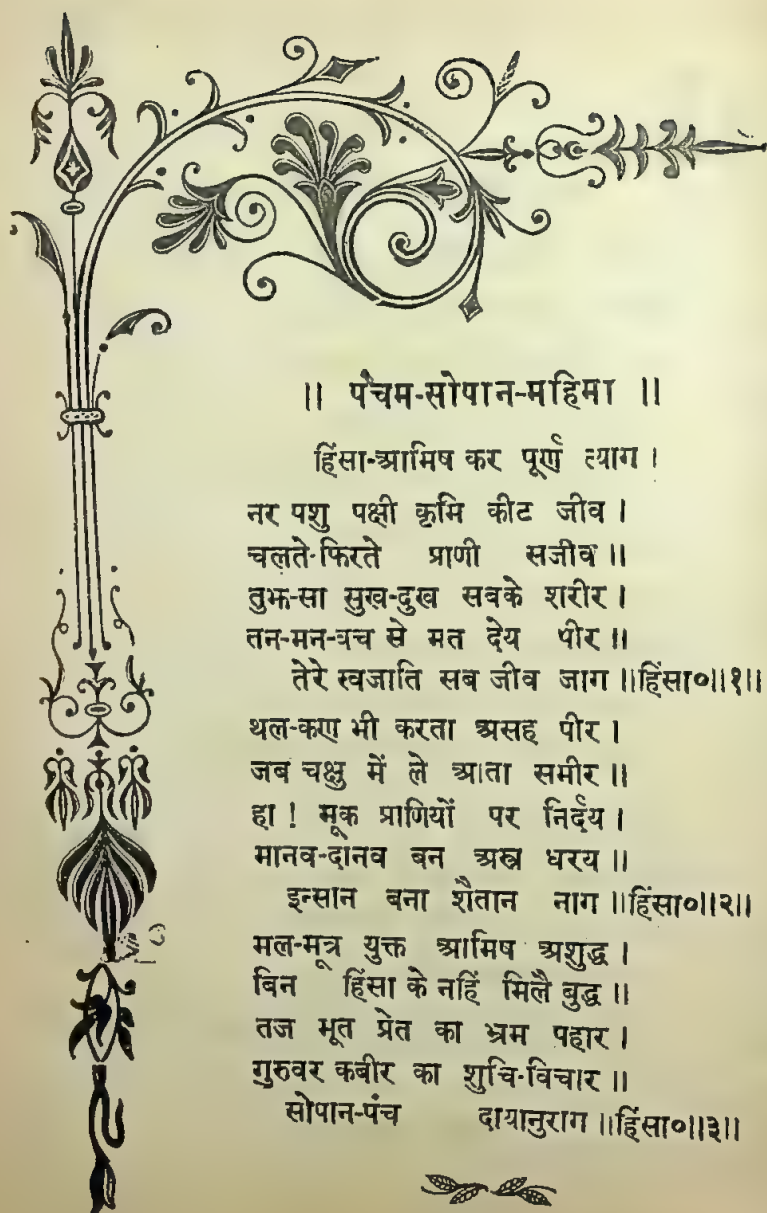 || पंचम-सोपान-महिमा ||
हिंसा-आमिष कर पूर्ण त्याग ।
नर पशु पक्षी कृमि कीट जीव ।
चलते-फिरते प्राणी सजीव ॥
तुझ-सा सुख-दुख सबके शरीर ।
तन-मन-वच से मत देय पीर ॥
तेरे स्वजाति सब जीव जाग ॥हिंसा०॥१॥
थल-कण भी करता असह पीर ।
जब चक्षु में ले आता समीर ॥
हा ! मूक प्राणियों पर निर्दय ।
मानव-दानव बन अस्त्र धरय ॥
इन्सान बना शैतान नाग ॥हिंसा०॥२॥
मल-मूत्र युक्त आमिष अशुद्ध ।
विन हिंसा के नहिं मिलै बुद्ध ॥
तज भूत प्रेत का भ्रम पहार ।
गुरुवर कबीर का शुचि-विचार ॥
सोपान-पंच दायानुराग ॥हिंसा०॥३॥